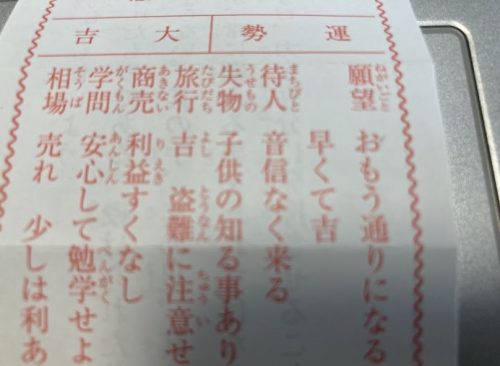 運勢 大吉
願望 おもう通りになる
早くて吉
待人 音信なく来る
失物 子供の知る事あり
旅行 吉 盗難に注意せ
商売 利益すくなし
学問 安心して勉学せよ
相場 売れ 少しは利あ